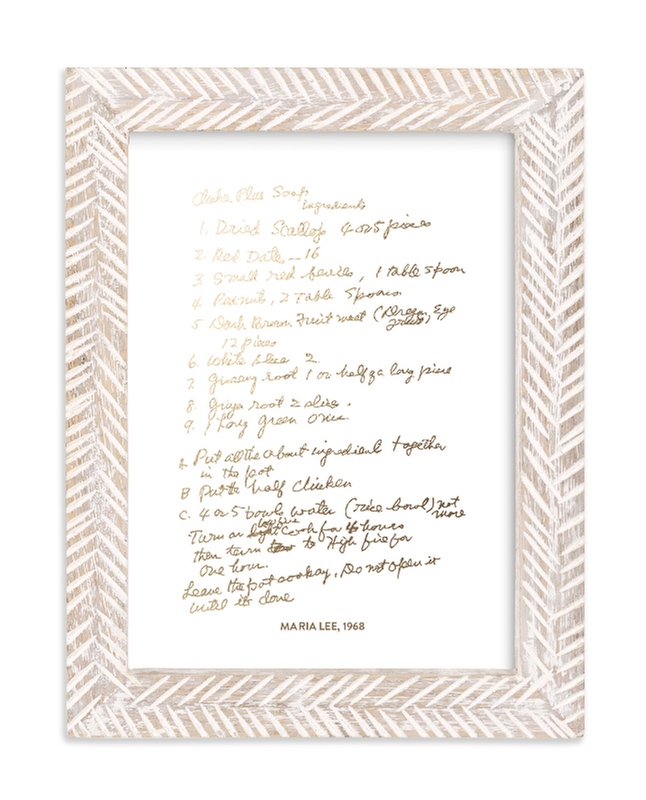 Plus Soup
ingredients
1. Dried Scallop 4 or 5 pieces
2. Red Date — 16
3 Small red berries, 1 table spoon
4. Peanuts, 2 Table Spoons
5 Dark Brown Fruit meat (Dragon Eye
12 pieces
6. White 2.
7. Ginseng root 1 or half a long piece
8. root 2 slice.
9. 1 Long green Onion
A Put all the about ingredient together
in the pot
B Put the half Chicken
C. 4 or 5 bowls water (rice bowl) not
more
Turn on low fire Cook for 4 hours
then turn to High fire for
One hour.
Leave the pot cookay, Do not open it
until it's done
MARIA LEE, 1968